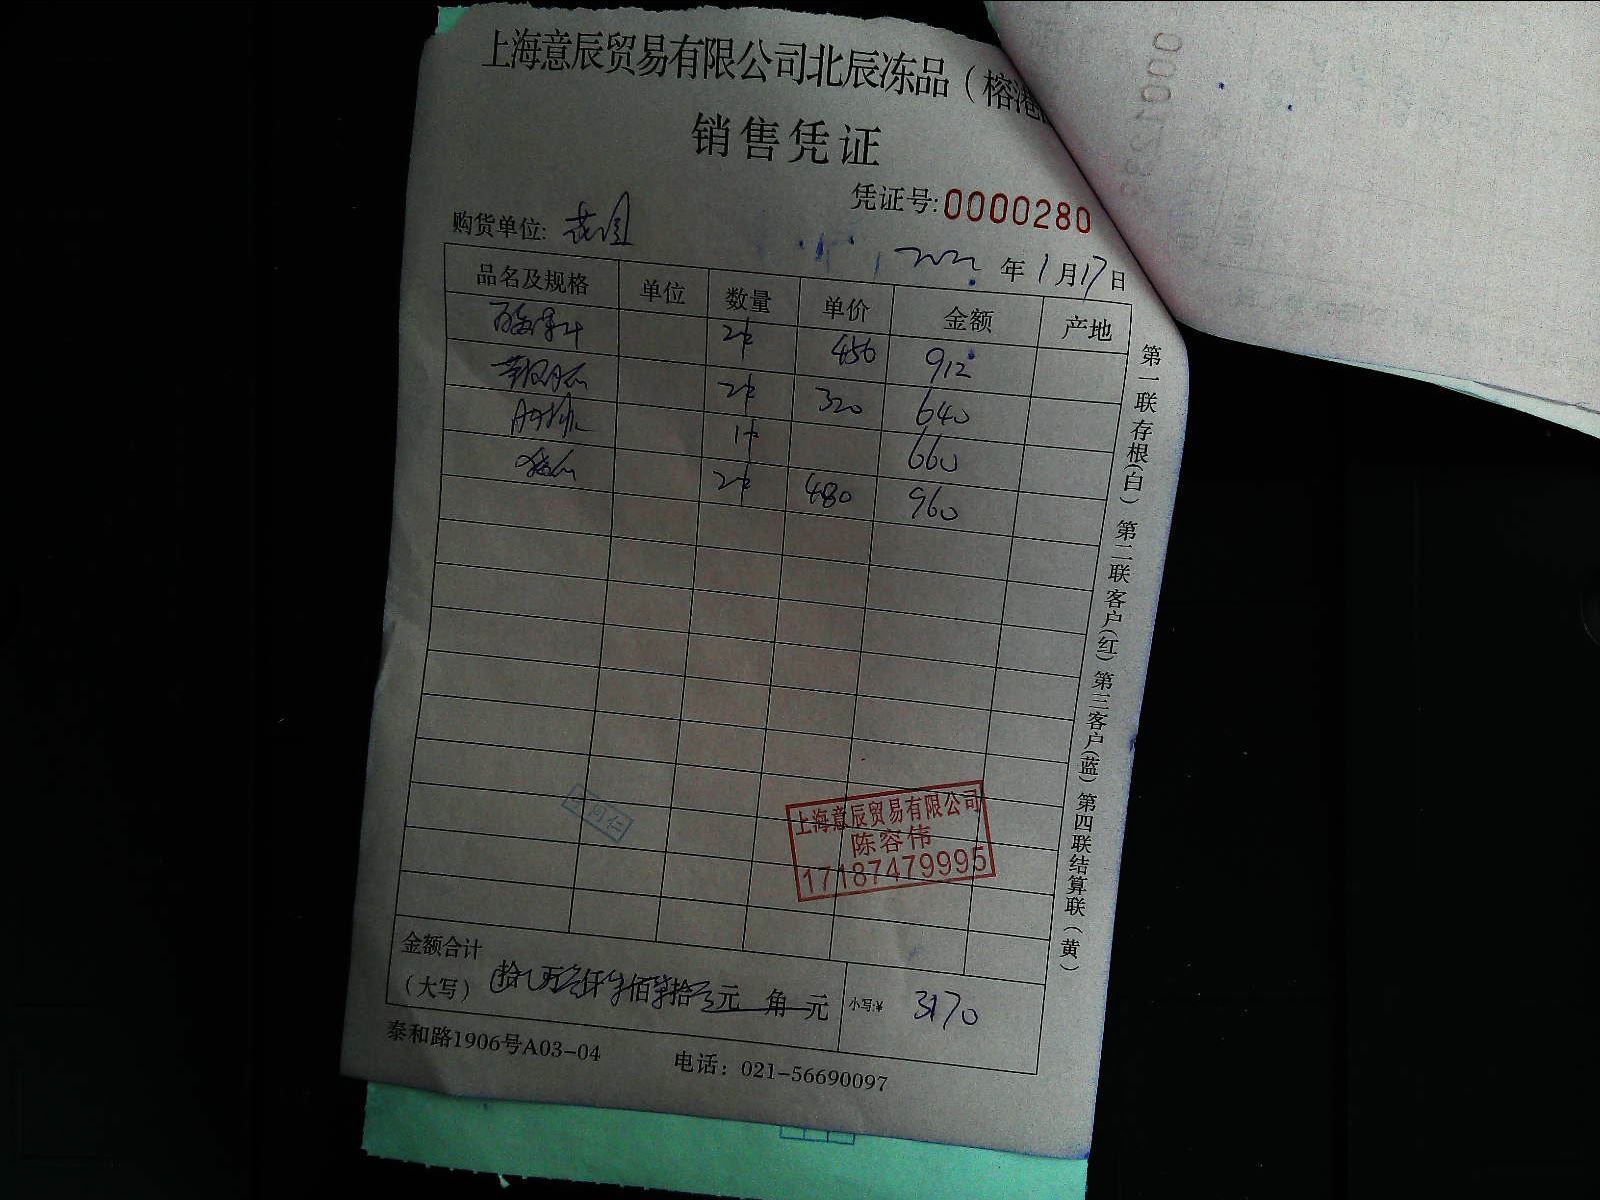 上海意辰贸易有限公司北辰冻品(榕港
销售凭证
凭证号:0000280
购货单位:
2022 年 1 月 17 日
品名及规格 单位 数量 单价 金额 产地
2件 456 912
2件 320 640
1件 660
2件 480 960
上海意辰贸易有限公司
陈容伟
17187479995
金额合计
(大写) 拾 万 仟 佰 拾 元 角 元 小写:¥ 3170
泰和路1906号A03-04 电话：021-56690097
第一联存根(白) 第二联客户(红) 第三客户(蓝) 第四联结算联(黄)